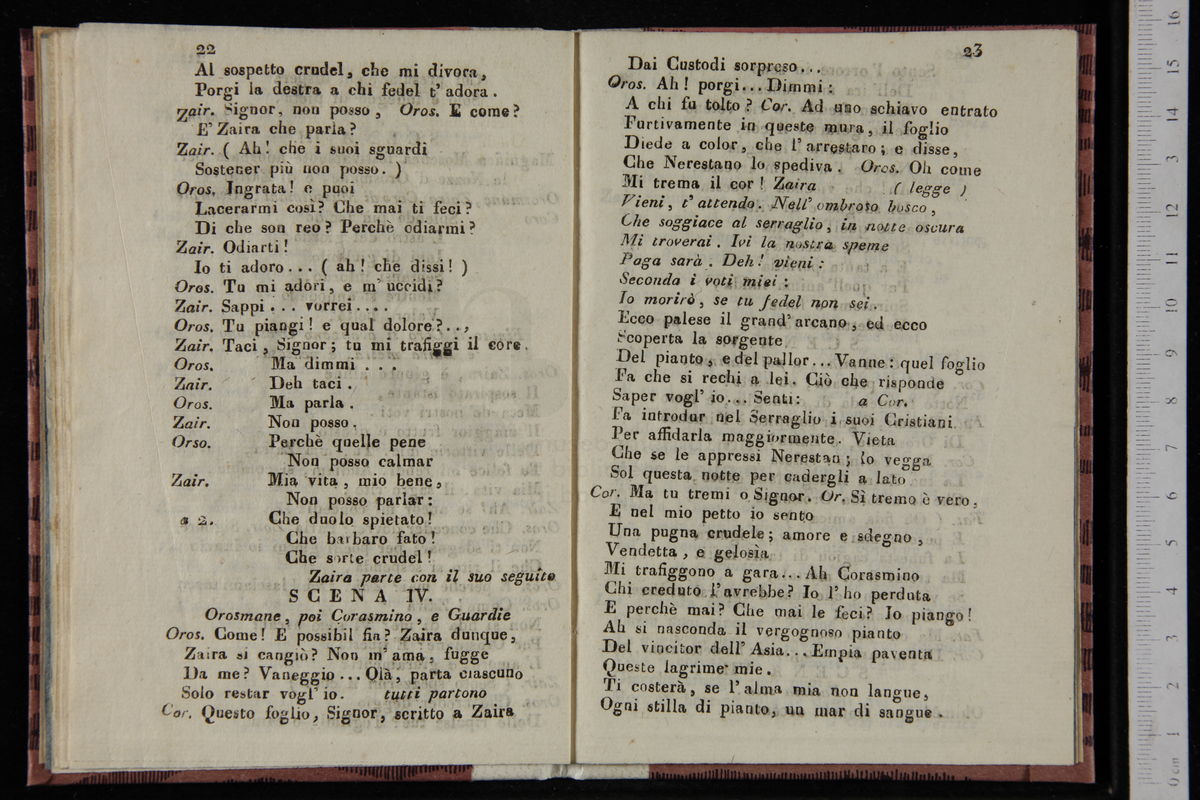 22
Al sospetto crudel, che mi divora,
Porgi la destra a chi fedel t' adora.
Zair. Signor, non posso, Oros. E come?
E' Zaira che parla?
Zair. ( Ah! che i suoi sguardi
Sostener più non posso. )
Oros. Ingrata! e puoi
Lacerarmi così? Che mai ti feci?
Di che son reo? Perchè odiarmi?
Zair. Odiarti!
Io ti adoro... ( ah! che dissi! )
Oros. Tu mi adori, e m' uccidi?
Zair. Sappi... vorrei....
Oros. Tu piangi! e qual dolore?..,
Zair. Taci, Signor; tu mi trafiggi il core.
Oros. Ma dimmi...
Zair. Deh taci.
Oros. Ma parla.
Zair. Non posso.
Orso. Perchè quelle pene
Non posso calmar
Zair. Mia vita, mio bene,
Non posso parlar:
a 2. Che duolo spietato!
Che barbaro fato!
Che sorte crudel!
Zaira parte con il suo seguito
SCENA IV.
Orosmane, poi Corasmino, e Guardie
Oros. Come! E possibil fia? Zaira dunque,
Zaira si cangiò? Non m' ama, fugge
Da me? Vaneggio... Olà, parta ciascuno
Solo restar vogl' io. tutti partono
Cor. Questo foglio, Signor, scritto a Zaira
23
Dai Custodi sorpreso...
Oros. Ah! porgi... Dimmi:
A chi fu tolto? Cor. Ad uno schiavo entrato
Furtivamente in queste mura, il foglio
Diede a color, che l' arrestaro; e disse,
Che Nerestano lo spediva. Oros. Oh come
Mi trema il cor! Zaira ( legge )
Vieni, t' attendo. Nell' ombroso bosco,
Che soggiace al serraglio, in notte oscura
Mi troverai. Ivi la nostra speme
Paga sarà. Deh! vieni:
Seconda i voti miei:
Io morirò, se tu fedel non sei.
Ecco palese il grand' arcano, ed ecco
Scoperta la sorgente
Del pianto, e del pallor... Vanne: quel foglio
Fa che si rechi a lei. Ciò che risponde
Saper vogl' io... Senti: a Cor.
Fa introdur nel Serraglio i suoi Cristiani
Per affidarla maggiormente. Vieta
Che se le appressi Nerestan; lo vegga
Sol questa notte per cadergli a lato.
Cor. Ma tu tremi o Signor. Or. Sì tremo è vero,
E nel mio petto io sento
Una pugna crudele; amore e sdegno,
Vendetta, e gelosia
Mi trafiggono a gara... Ah Corasmino
Chi creduto l' avrebbe? Io l' ho perduta
E perchè mai? Che mai le feci? Io piango!
Ah si nasconda il vergognoso pianto
Del vincitor dell' Asia... Empia paventa
Queste lagrime mie.
Ti costerà, se l' alma mia non langue,
Ogni stilla di pianto, un mar di sangue.
0 cm 1 2 3 4 5 6 7 8 9 10 11 12 13 14 15 16